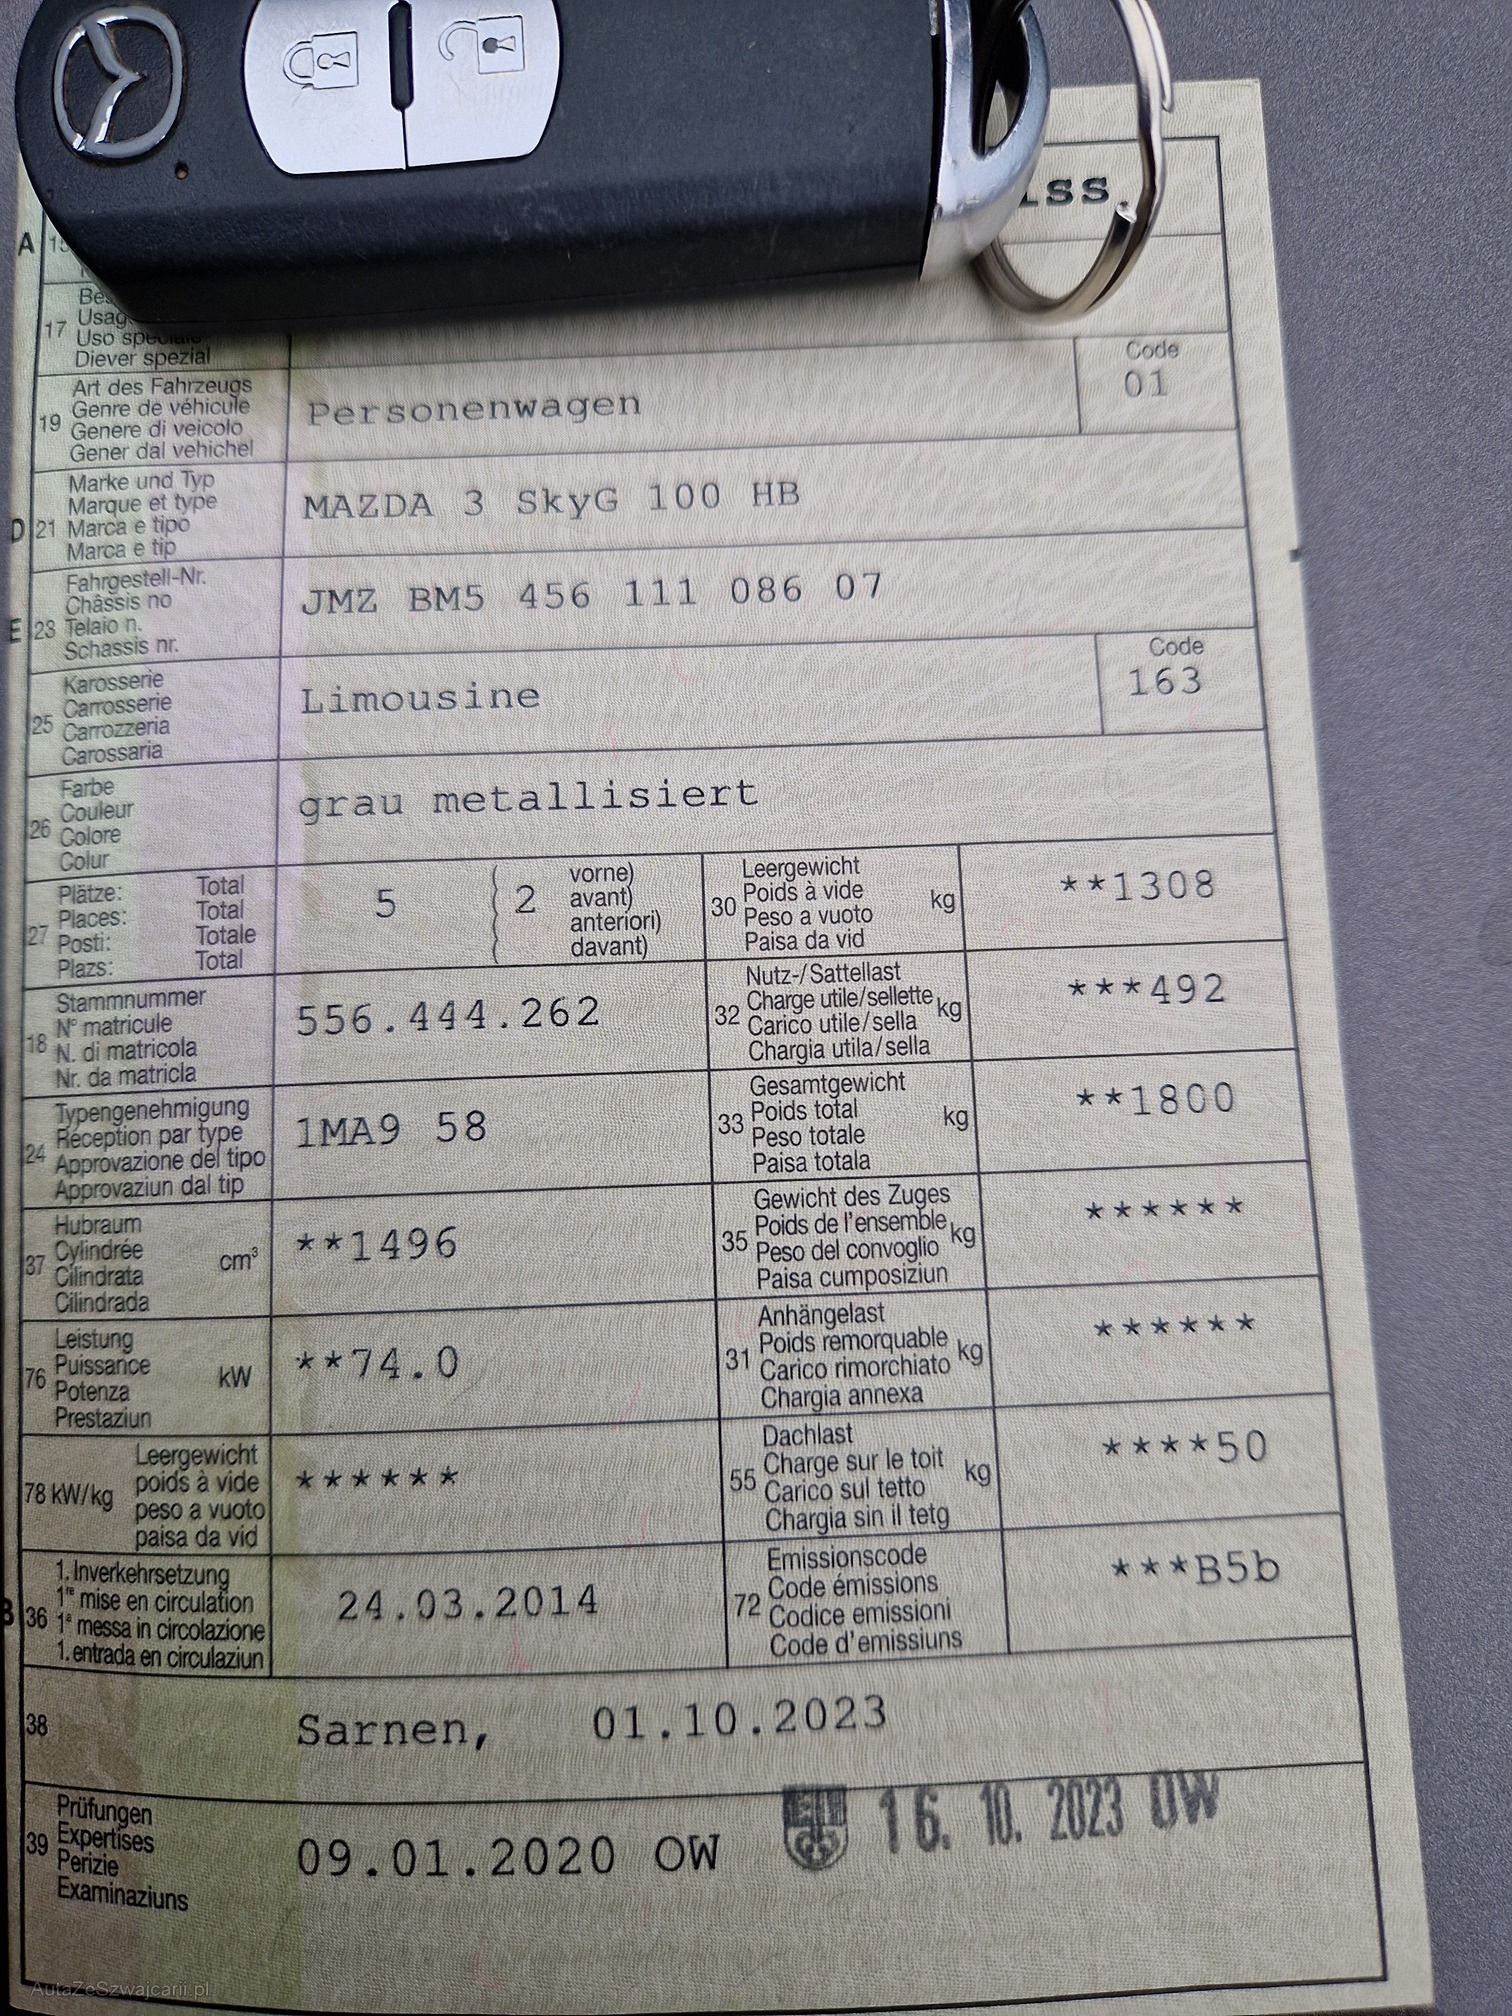 iss.
A 15
17 Usag
Uso speciale
Diever spezial
19 Art des Fahrzeugs
Genre de véhicule
Genere di veicolo
Gener dal vehichel
Personenwagen
Code
01
D 21 Marke und Typ
Marque et type
Marca e tipo
Marca e tip
MAZDA 3 SkyG 100 HB
E 23 Fahrgestell-Nr.
Châssis no
Telaio n.
Schassis nr.
JMZ BM5 456 111 086 07
25 Karosserie
Carrosserie
Carrozzeria
Carossaria
Limousine
Code
163
26 Farbe
Couleur
Colore
Colur
grau metallisiert
27 Plätze: Total
Places: Total
Posti: Totale
Plazs: Total
5 2 vorne)
avant)
anteriori)
davant)
30 Leergewicht
Poids à vide
Peso a vuoto
Paisa da vid
kg **1308
18 Stammnummer
N° matricule
N. di matricola
Nr. da matricla
556.444.262
32 Nutz-/Sattellast
Charge utile/sellette
Carico utile/sella
Chargia utila/sella
kg ***492
24 Typengenehmigung
Réception par type
Approvazione del tipo
Approvaziun dal tip
1MA9 58
33 Gesamtgewicht
Poids total
Peso totale
Paisa totala
kg **1800
37 Hubraum
Cylindrée
Cilindrata
Cilindrada
cm³ **1496
35 Gewicht des Zuges
Poids de l'ensemble
Peso del convoglio
Paisa cumposiziun
kg ******
76 Leistung
Puissance
Potenza
Prestaziun
kW **74.0
31 Anhängelast
Poids remorquable
Carico rimorchiato
Chargia annexa
kg ******
78 kW/kg Leergewicht
poids à vide
peso a vuoto
paisa da vid
******
55 Dachlast
Charge sur le toit
Carico sul tetto
Chargia sin il tetg
kg ****50
B 36 1. Inverkehrsetzung
1re mise en circulation
1a messa in circolazione
1. entrada en circulaziun
24.03.2014
72 Emissionscode
Code émissions
Codice emissioni
Code d'emissiuns
***B5b
38 Sarnen, 01.10.2023
39 Prüfungen
Expertises
Perizie
Examinaziuns
09.01.2020 OW
16. 10. 2023 OW
AutaZeSzwajcarii.pl